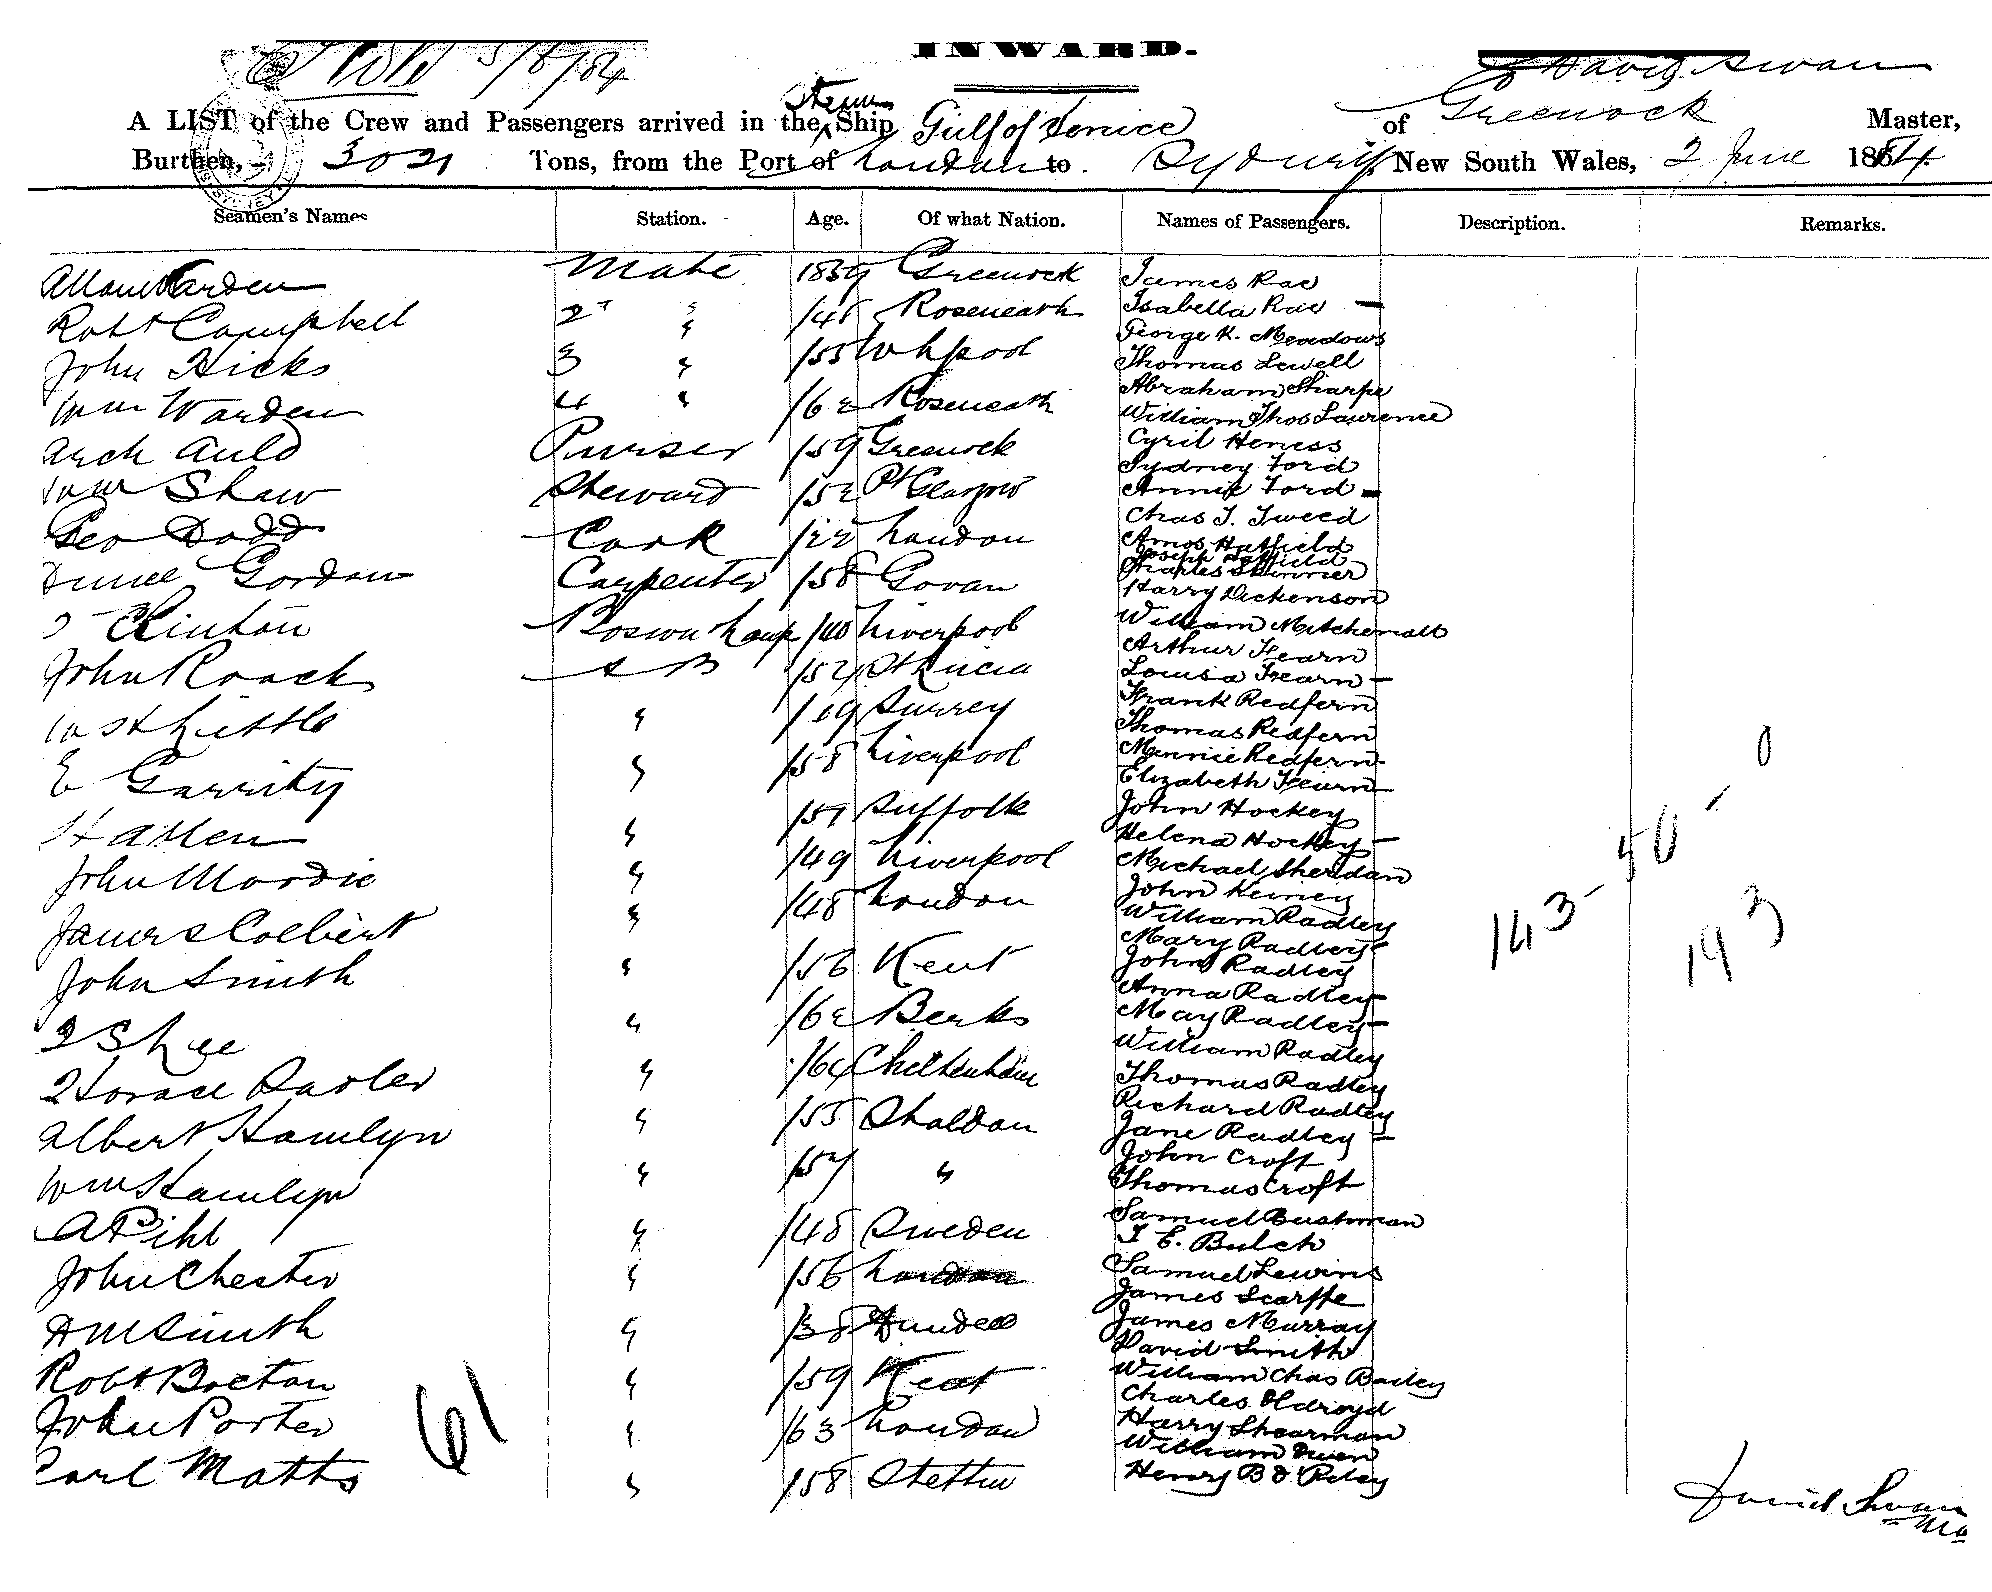 INWARD.
5/8/84
David Swan
A LIST of the Crew and Passengers arrived in the Steam Ship Gulf of Venice of Greenock Master,
Burthen, 3021 Tons, from the Port of London to Sydney New South Wales, 2 June 1884
Seamen's Names Station. Age. Of what Nation. Names of Passengers. Description. Remarks.
Allan Warden Mate 1859 Greenock James Rae
Robt Campbell 2d " /48 Roseneath Isabella Rae —
George K. Meadows
John Hicks 3 " /55 Whpool Thomas Lewell
Abraham Sharpe
Wm Warden 4 " /62 Roseneath William Thos Lawrence
Arch Auld Purser /59 Greenock Cyril Heness
Sydney Ford
Wm Shaw Steward /52 Pt Glasgow Annie Ford —
Chas T. Tweed
Geo Dodd Cook /22 London Amos Hatfield
Joseph Hatfield
Gordon Carpenter /58 Govan Charles Skinner
Harry Dickenson
Clinton Boswn & Lamp /40 Liverpool William Mitchenall
Arthur Fearn
John Roach A B /54 St Lucia Louisa Fearn —
Frank Redfern
Little " /59 Surrey Thomas Redfern
E Garrity " /58 Liverpool Minnie Redfern —
Elizabeth Fearn —
H Allen " /57 Suffolk John Hockey
Helena Hockey —
John Mordie " /49 Liverpool Michael Sheridan
John Keiney
James Colbert " /48 London William Radley
Mary Radley —
John Smith " /56 Kent John Radley
Anna Radley —
Lee " /62 Berks May Radley —
William Radley
Horace Sadler " /64 Cheltenham Thomas Radley
Richard Radley
Albert Hamlyn " /55 Shaldon Jane Radley —
John Croft
Wm Hamlyn " /57 " Thomas Croft
A Pihl " /48 Sweden Samuel Bushman
T E. Bulch
John Chester " /56 London Samuel Lewins
James Scarffe
H M Smith " /38 Dundee James Murray
David Smith
Robt Bocton " /59 Kent William Chas Bailey
Charles Oldroyd
John Porter " /63 London Harry Shearman
William Owen
Carl Matts " /58 Stettin Henry B D Riley
61
143 - 50 - 0
193
David Swan